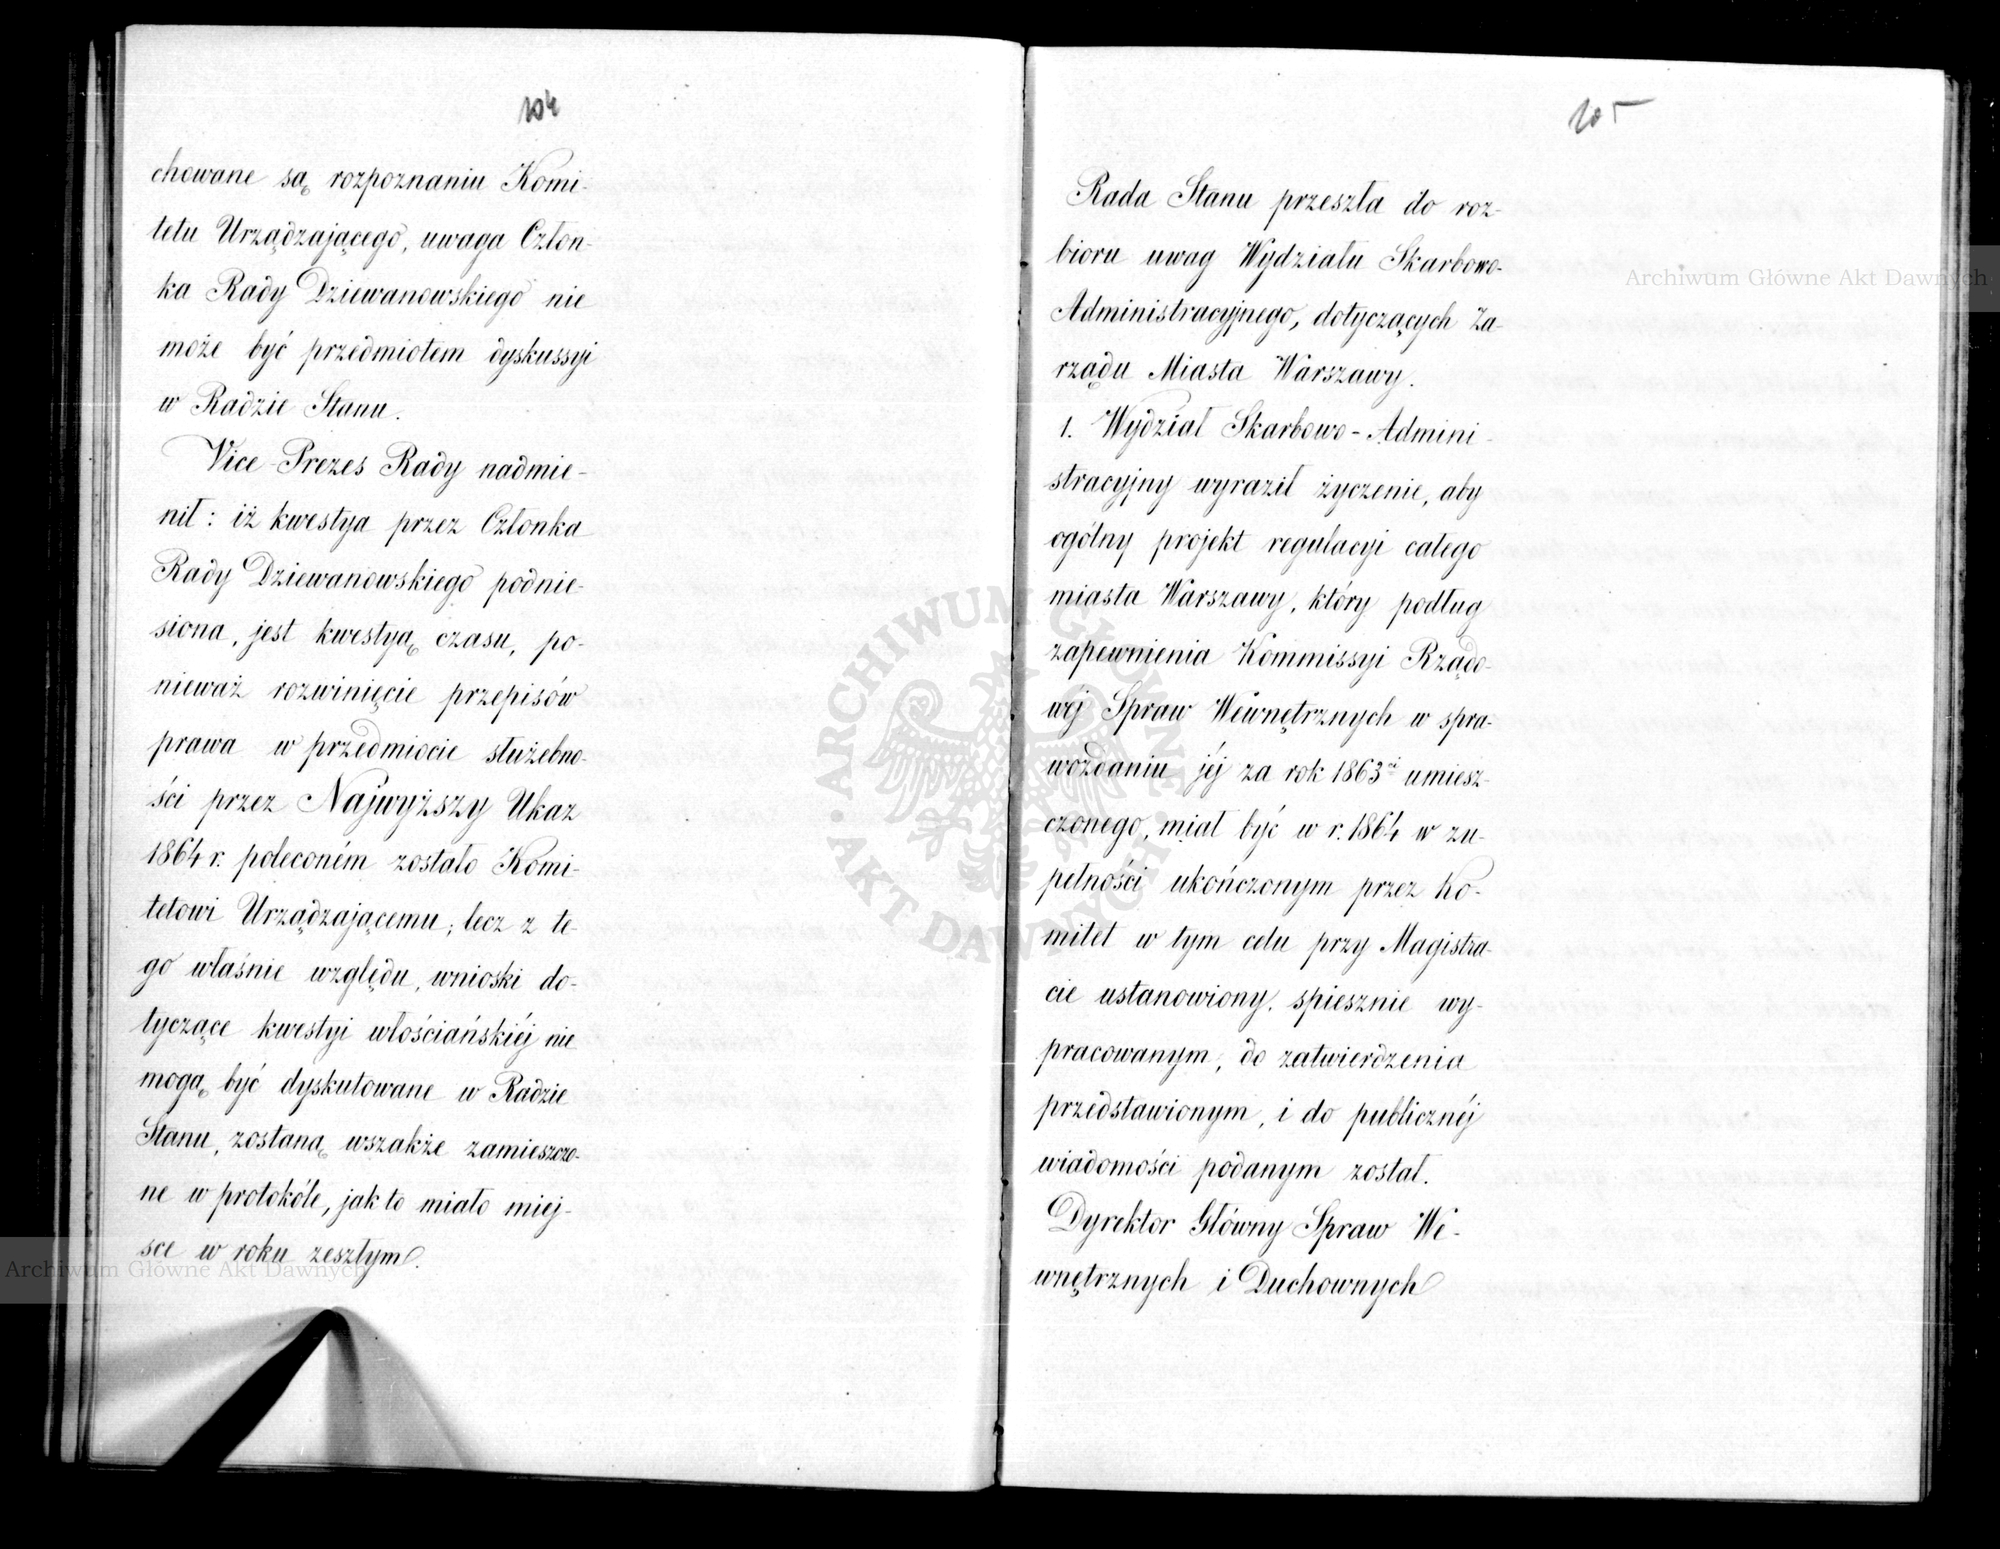 104
chowane są rozpoznaniu Komi-
tetu Urządzającego, uwaga Człon-
ka Rady Dziewanowskiego nie
może być przedmiotem dyskussyi
w Radzie Stanu.
Vice-Prezes Rady nadmie-
nił: iż kwestya przez Członka
Rady Dziewanowskiego podnie-
siona, jest kwestyą czasu, po-
nieważ rozwinięcie przepisów
prawa w przedmiocie służebno-
ści przez Najwyższy Ukaz
1864 r. poleconém zostało Komi-
tetowi Urządzającemu; lecz z te-
go właśnie względu, wnioski do-
tyczące kwestyi włościańskiéj nie
mogą być dyskutowane w Radzie
Stanu, zostaną wszakże zamieszczo-
ne w protokóle, jak to miało miej-
sce w roku zeszłym.
105
Rada Stanu przeszła do roz-
bioru uwag Wydziału Skarbowo-
Administracyjnego, dotyczących Za-
rządu Miasta Warszawy.
1. Wydział Skarbowo-Admini-
stracyjny wyraził życzenie, aby
ogólny projekt regulacyi całego
miasta Warszawy, który podług
zapewnienia Kommissyi Rządo-
wéj Spraw Wewnętrznych w spra-
wozdaniu jéj za rok 1863 umiesz-
czonego, miał być w r. 1864 w zu-
pełności ukończonym przez Ko-
mitet w tym celu przy Magistra-
cie ustanowiony, spiesznie wy-
pracowanym, do zatwierdzenia
przedstawionym, i do publicznéj
wiadomości podanym został.
Dyrektor Główny Spraw We-
wnętrznych i Duchownych
Archiwum Główne Akt Dawnych
Archiwum Główne Akt Dawnych
ARCHIWUM GŁÓWNE
AKT DAWNYCH